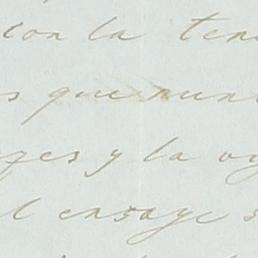 con la ten
s que nun
ges y la o
l ensaye s